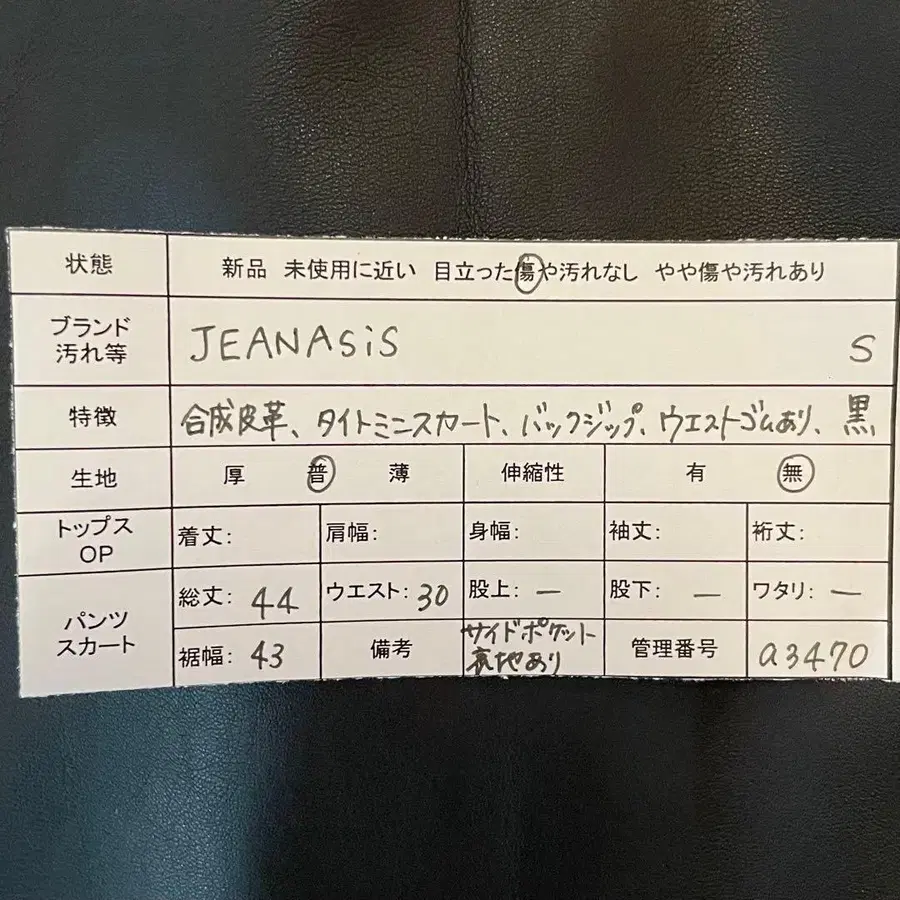 状態 新品 未使用に近い 目立った傷や汚れなし やや傷や汚れあり
ブランド
汚れ等 JEANASiS S
特徴 合成皮革、タイトミニスカート、バックジップ、ウエストゴムあり、黒
生地 厚 普 薄 伸縮性 有 無
トップス
OP 着丈: 肩幅: 身幅: 袖丈: 裄丈:
パンツ
スカート
総丈: 44 ウエスト: 30 股上: ー 股下: ー ワタリ: ー
裾幅: 43 備考 サイドポケット
裏地あり 管理番号 a3470